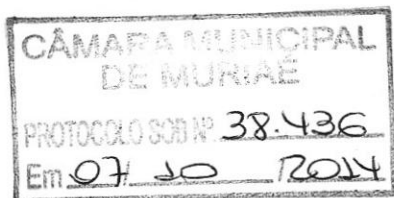 CÂMARA MUNICIPAL
DE MURIAÉ
PROTOCOLO SOB Nº 38.436
Em 07/ 10 /2014